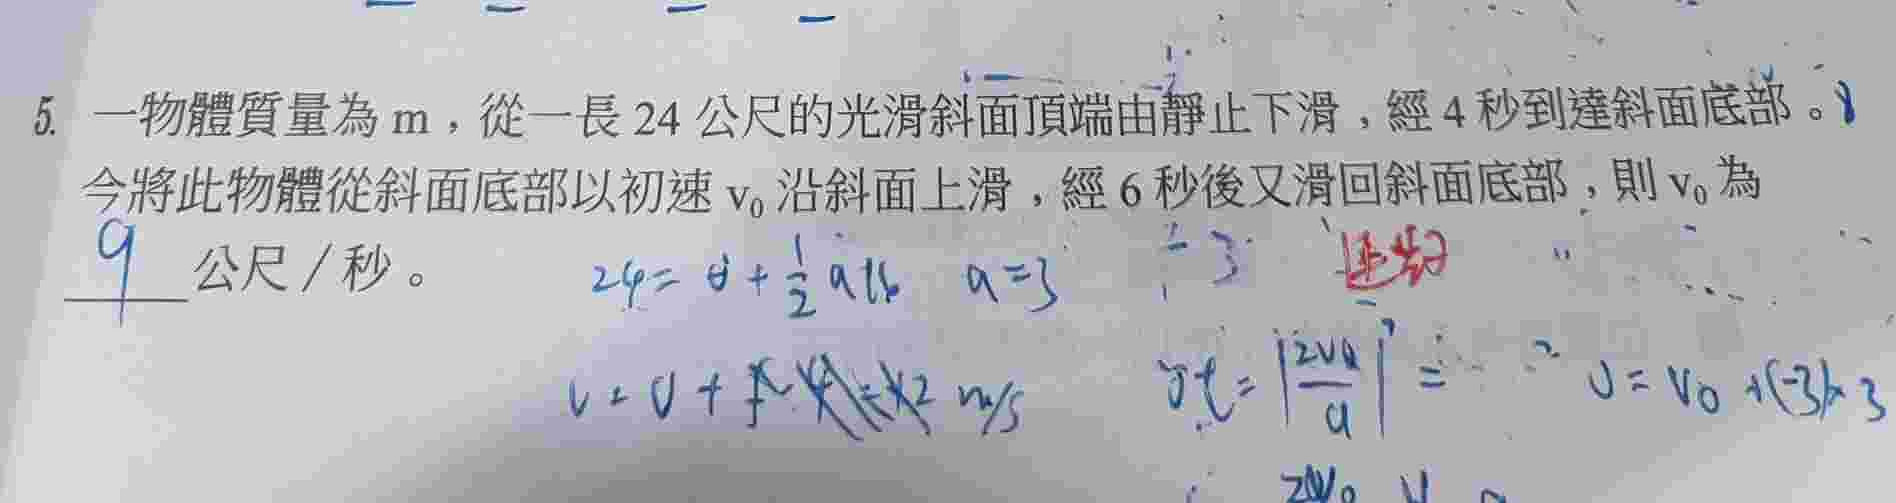 5. 一物體質量為 m，從一長 24 公尺的光滑斜面頂端由靜止下滑，經 4 秒到達斜面底部。
今將此物體從斜面底部以初速 v₀ 沿斜面上滑，經 6 秒後又滑回斜面底部，則 v₀ 為
9 公尺／秒。
24 = 0 + 1/2 a 16 a = 3
m/s
t = |2v₀/a| =
0 = v₀ + (-3) × 3